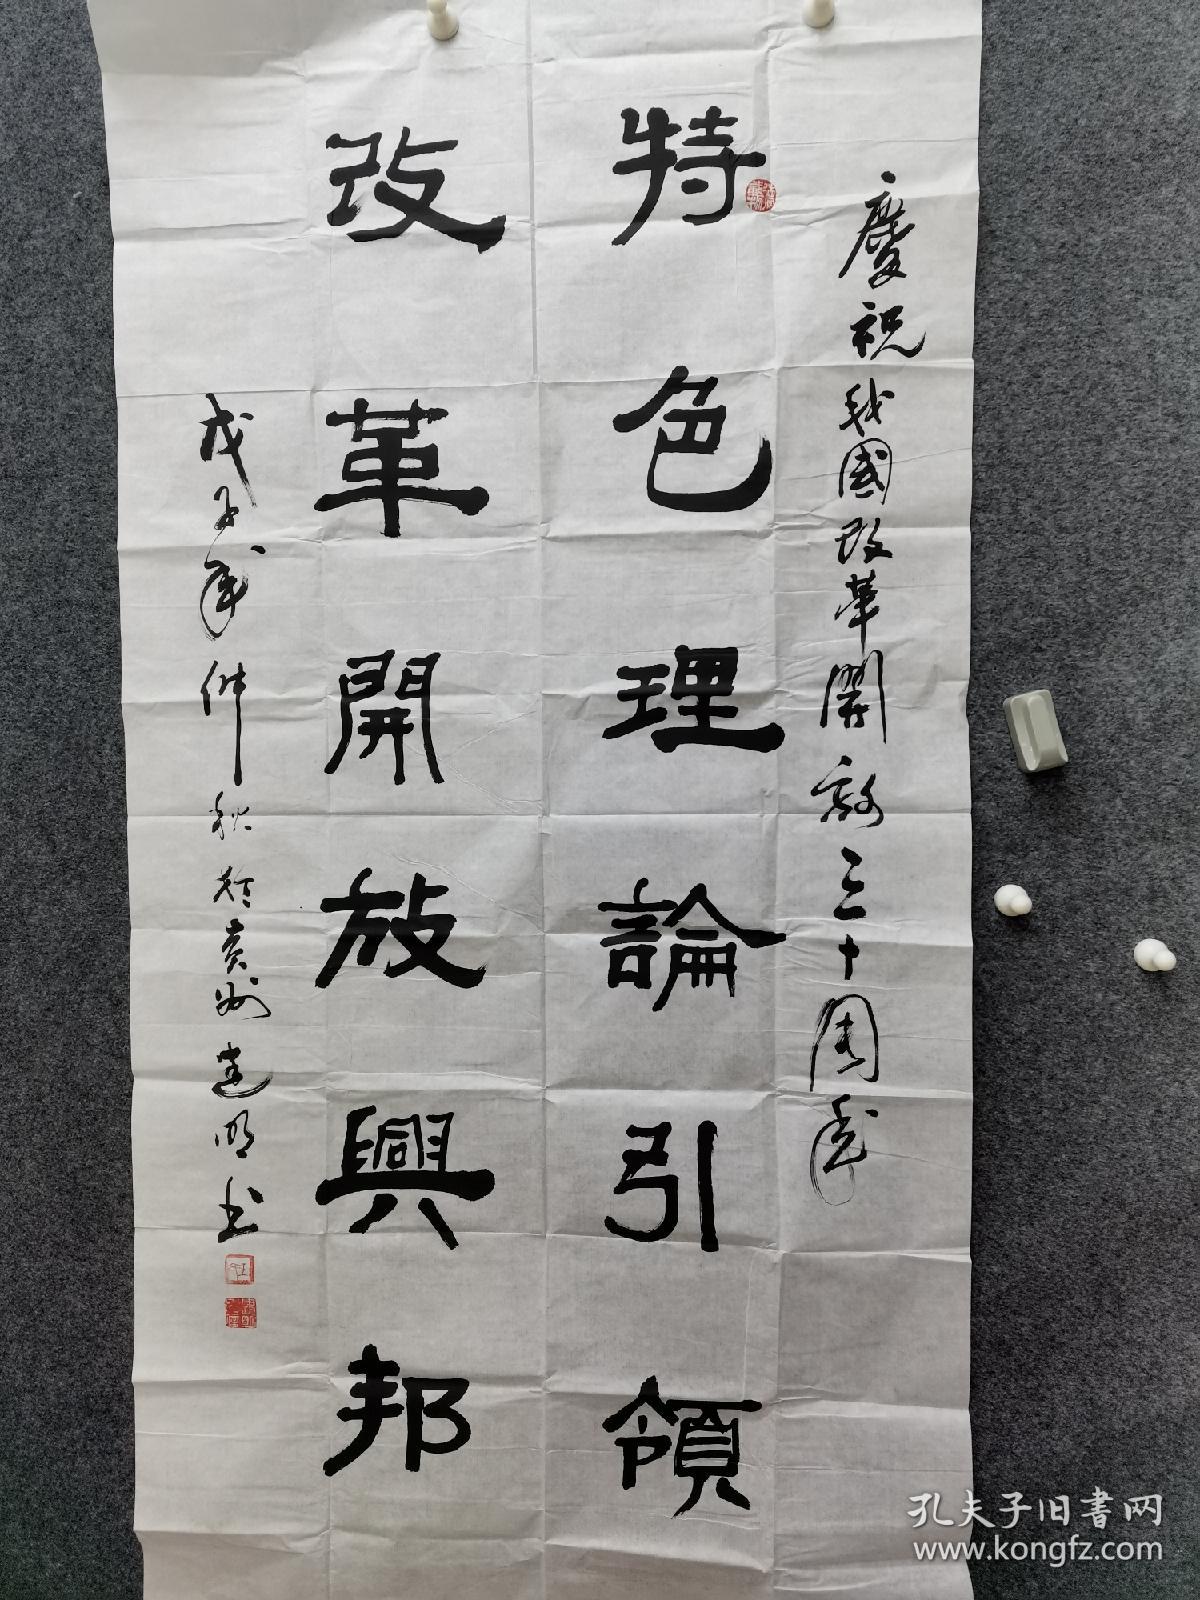 慶祝我國改革開放三十周年
特色理論引領
改革開放興邦
戊子年仲秋於黄州建明书
孔夫子旧書网
www.kongfz.com